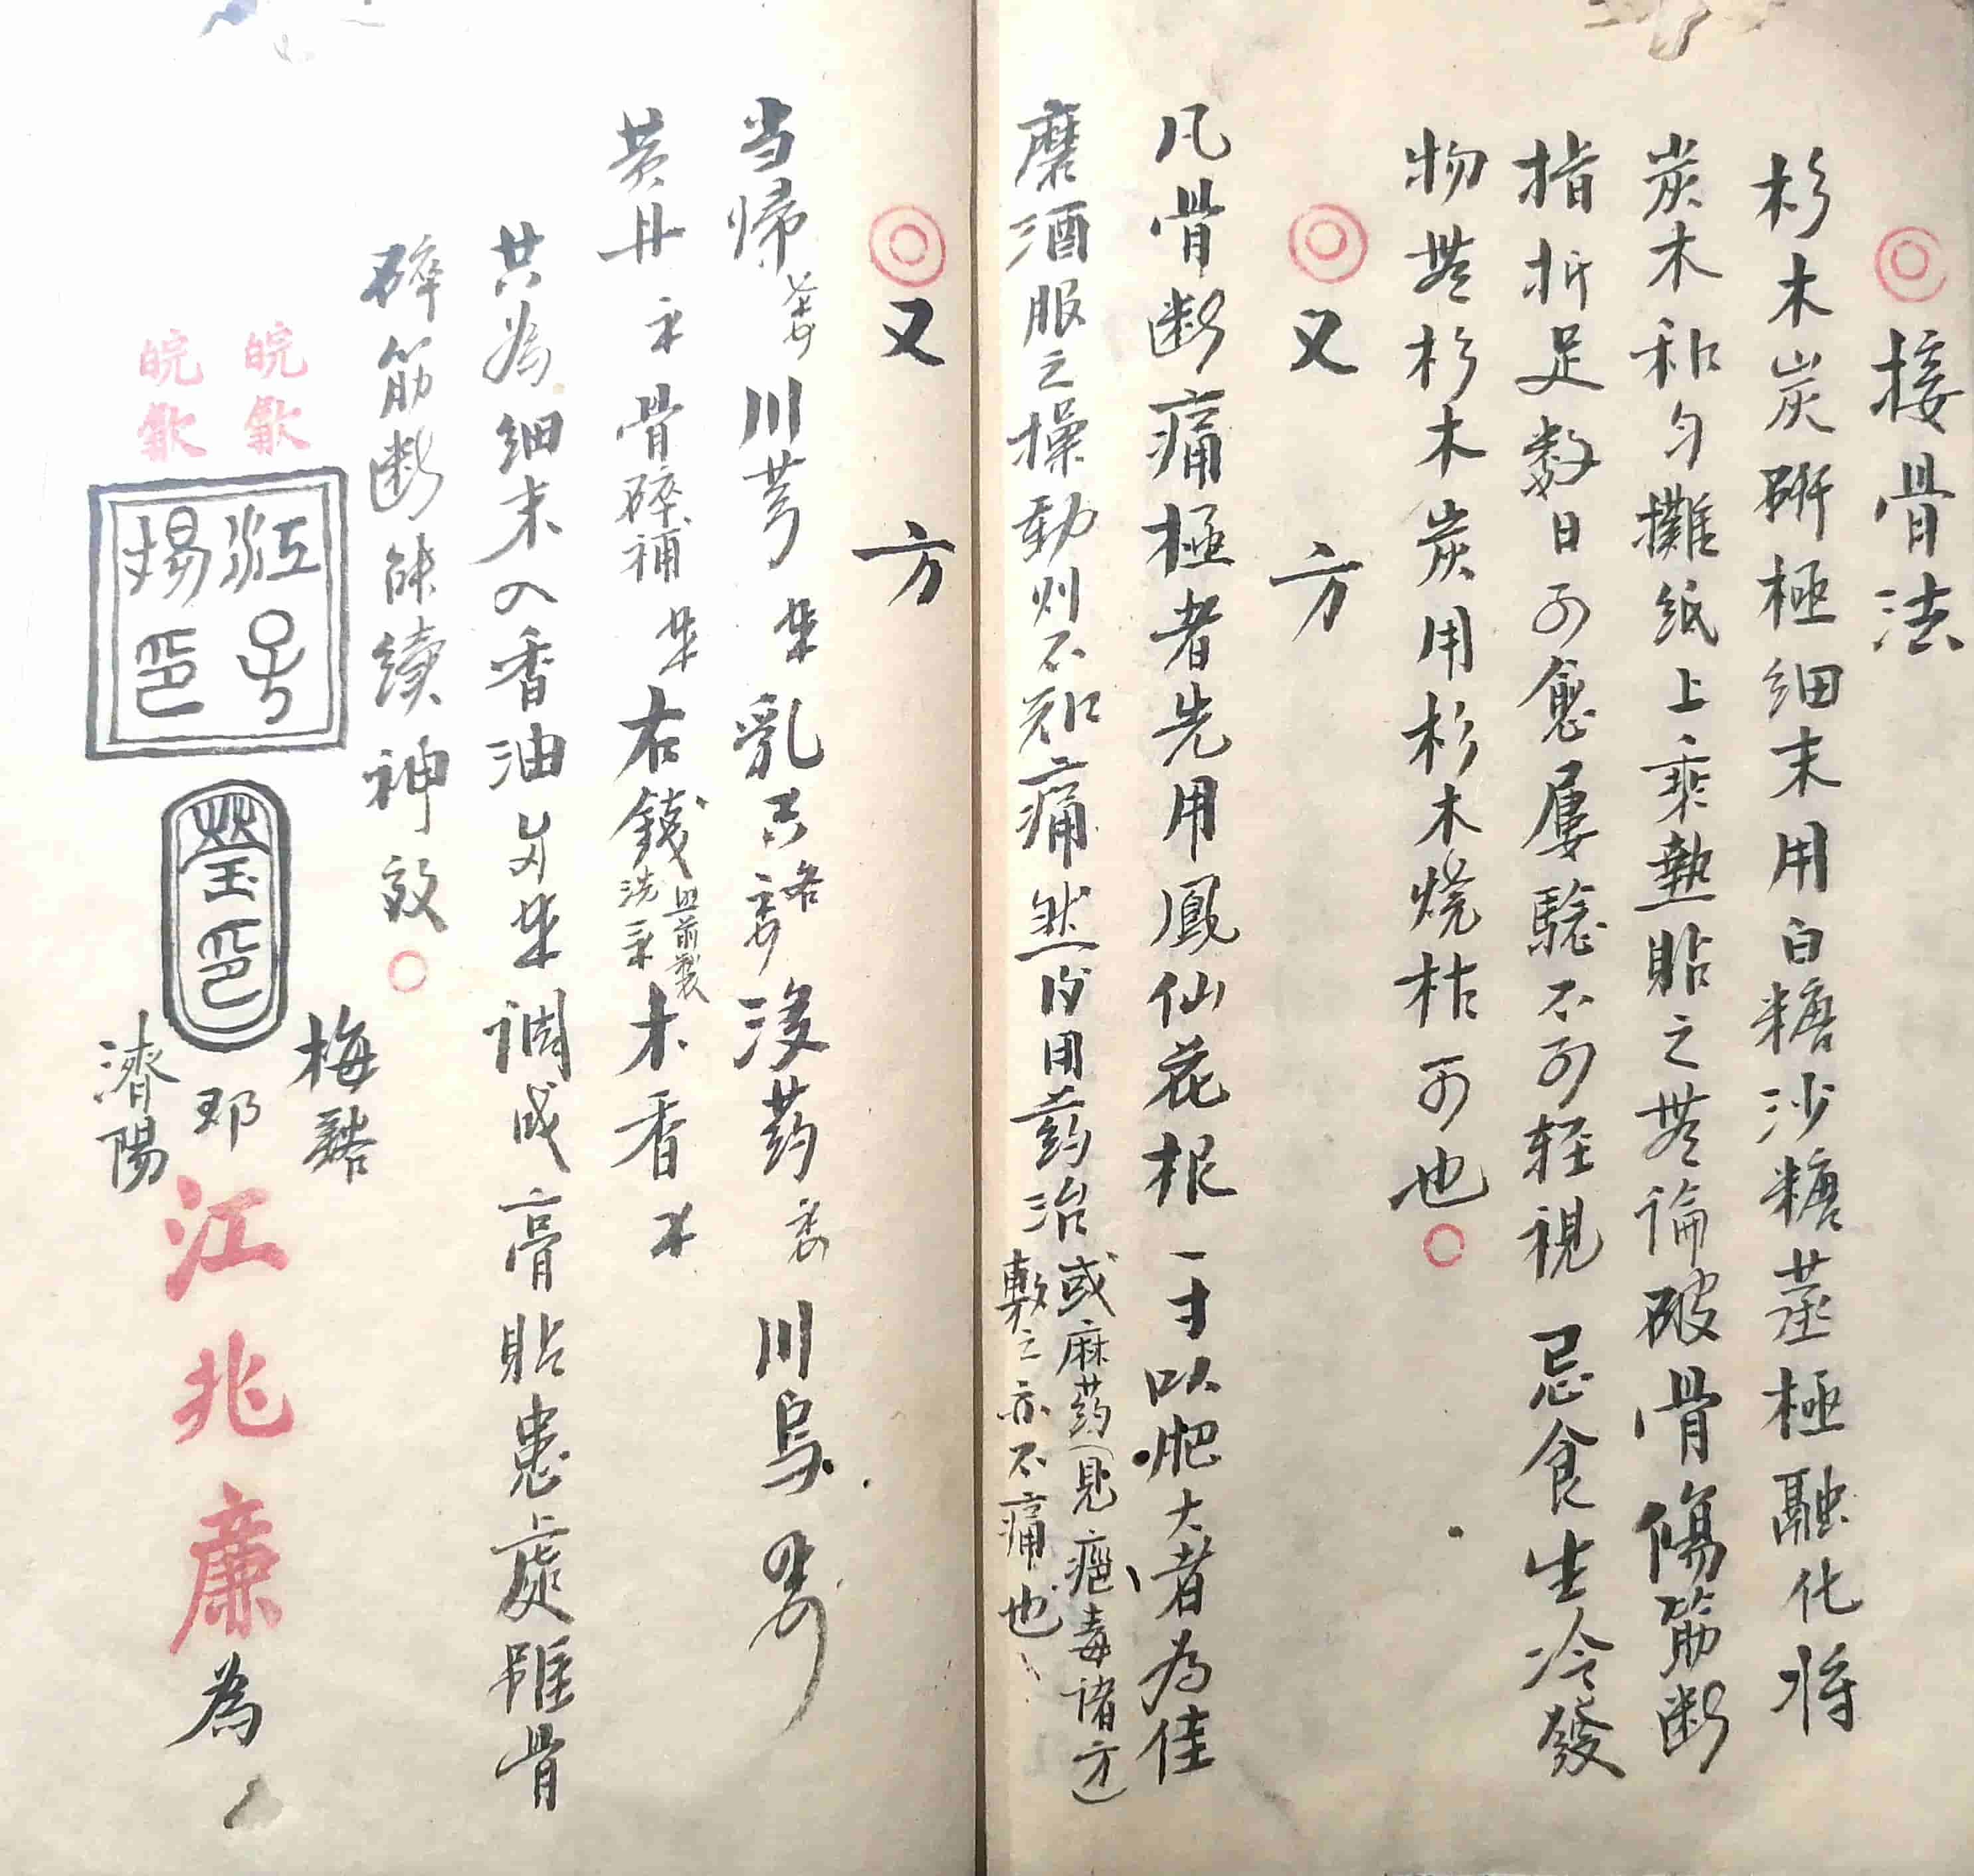 接骨法
杉木炭研極細末用白糖沙糖蒸極融化将
炭木和匀攤紙上乘熱貼之無論破骨傷筋断
指折足数日可愈屢驗不可轻視忌食生冷發
物無杉木炭用杉木燒枯可也
又方
凡骨断痛極者先用鳳仙花根一寸以肥大者為佳
磨酒服之操動则不知痛然后用药治或麻药(見瘡毒诸方)
敷之亦不痛也
又方
当归 川芎 乳香 没药 川烏
黄丹 骨碎補 右錢 木香
共為细末入香油 調成膏貼患處雖骨
碎筋断能續神效
皖歙
皖歙
江
兆
錫印
瑩印
梅谿
濟陽
邓
江兆廉為